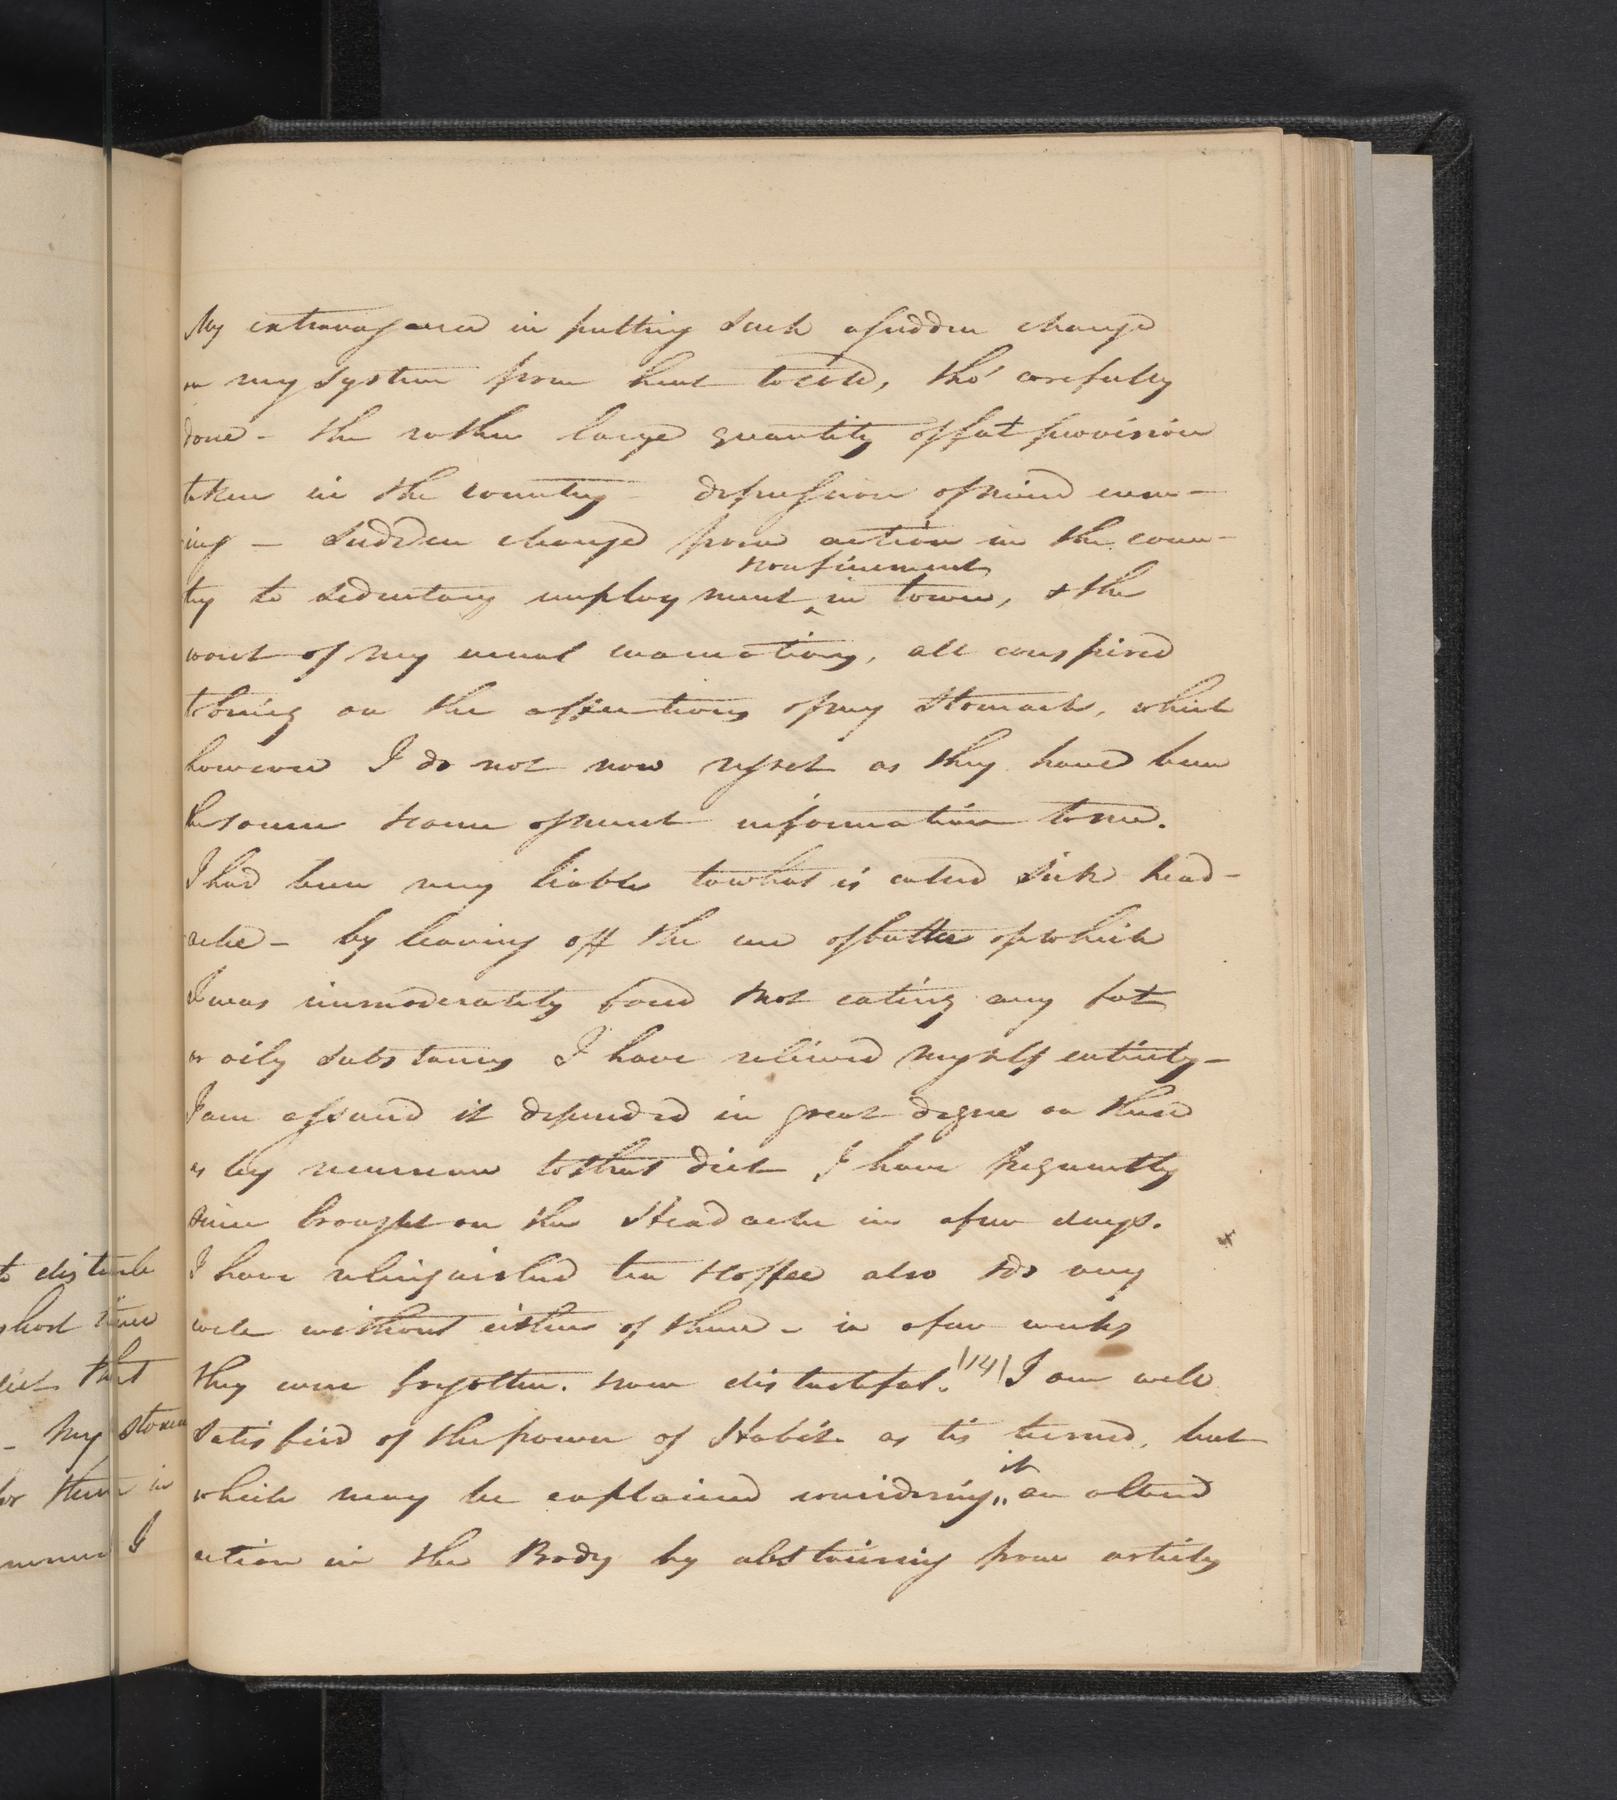 to disturb
short time
diet that
- my stomach
for them in
I
My extravagance in putting such a sudden change
on my system from heat to cold, tho' carefully
done - the rather large quantity of fat provision
taken in the country - depression of mind ensu-
ing - Sudden change from action in the coun-
& confinement
try to sedentary employment ^ in town, & the
want of my usual evacuations, all conspired
to bring on the affections of my Stomach, which
however I do not now regret as they have been
the source of much information to me.
I had been very liable to what is called Sick head-
ache - by leaving off the use of butter of which
I was immoderately fond & not eating any fat
or oily substances I have relieved myself entirely -
I am assured it depended in great degree on these
as by recurrence to that diet I have frequently
since brought on the Headache in a few days.
I have relinquished tea & coffee also & do very
well without either of them - in a few weeks
they were forgotten. now distasteful. |14| I am well
satisfied of the power of Habit as tis termed, but
it
which may be explained considering,, an altered
action in the Body by abstaining from articles